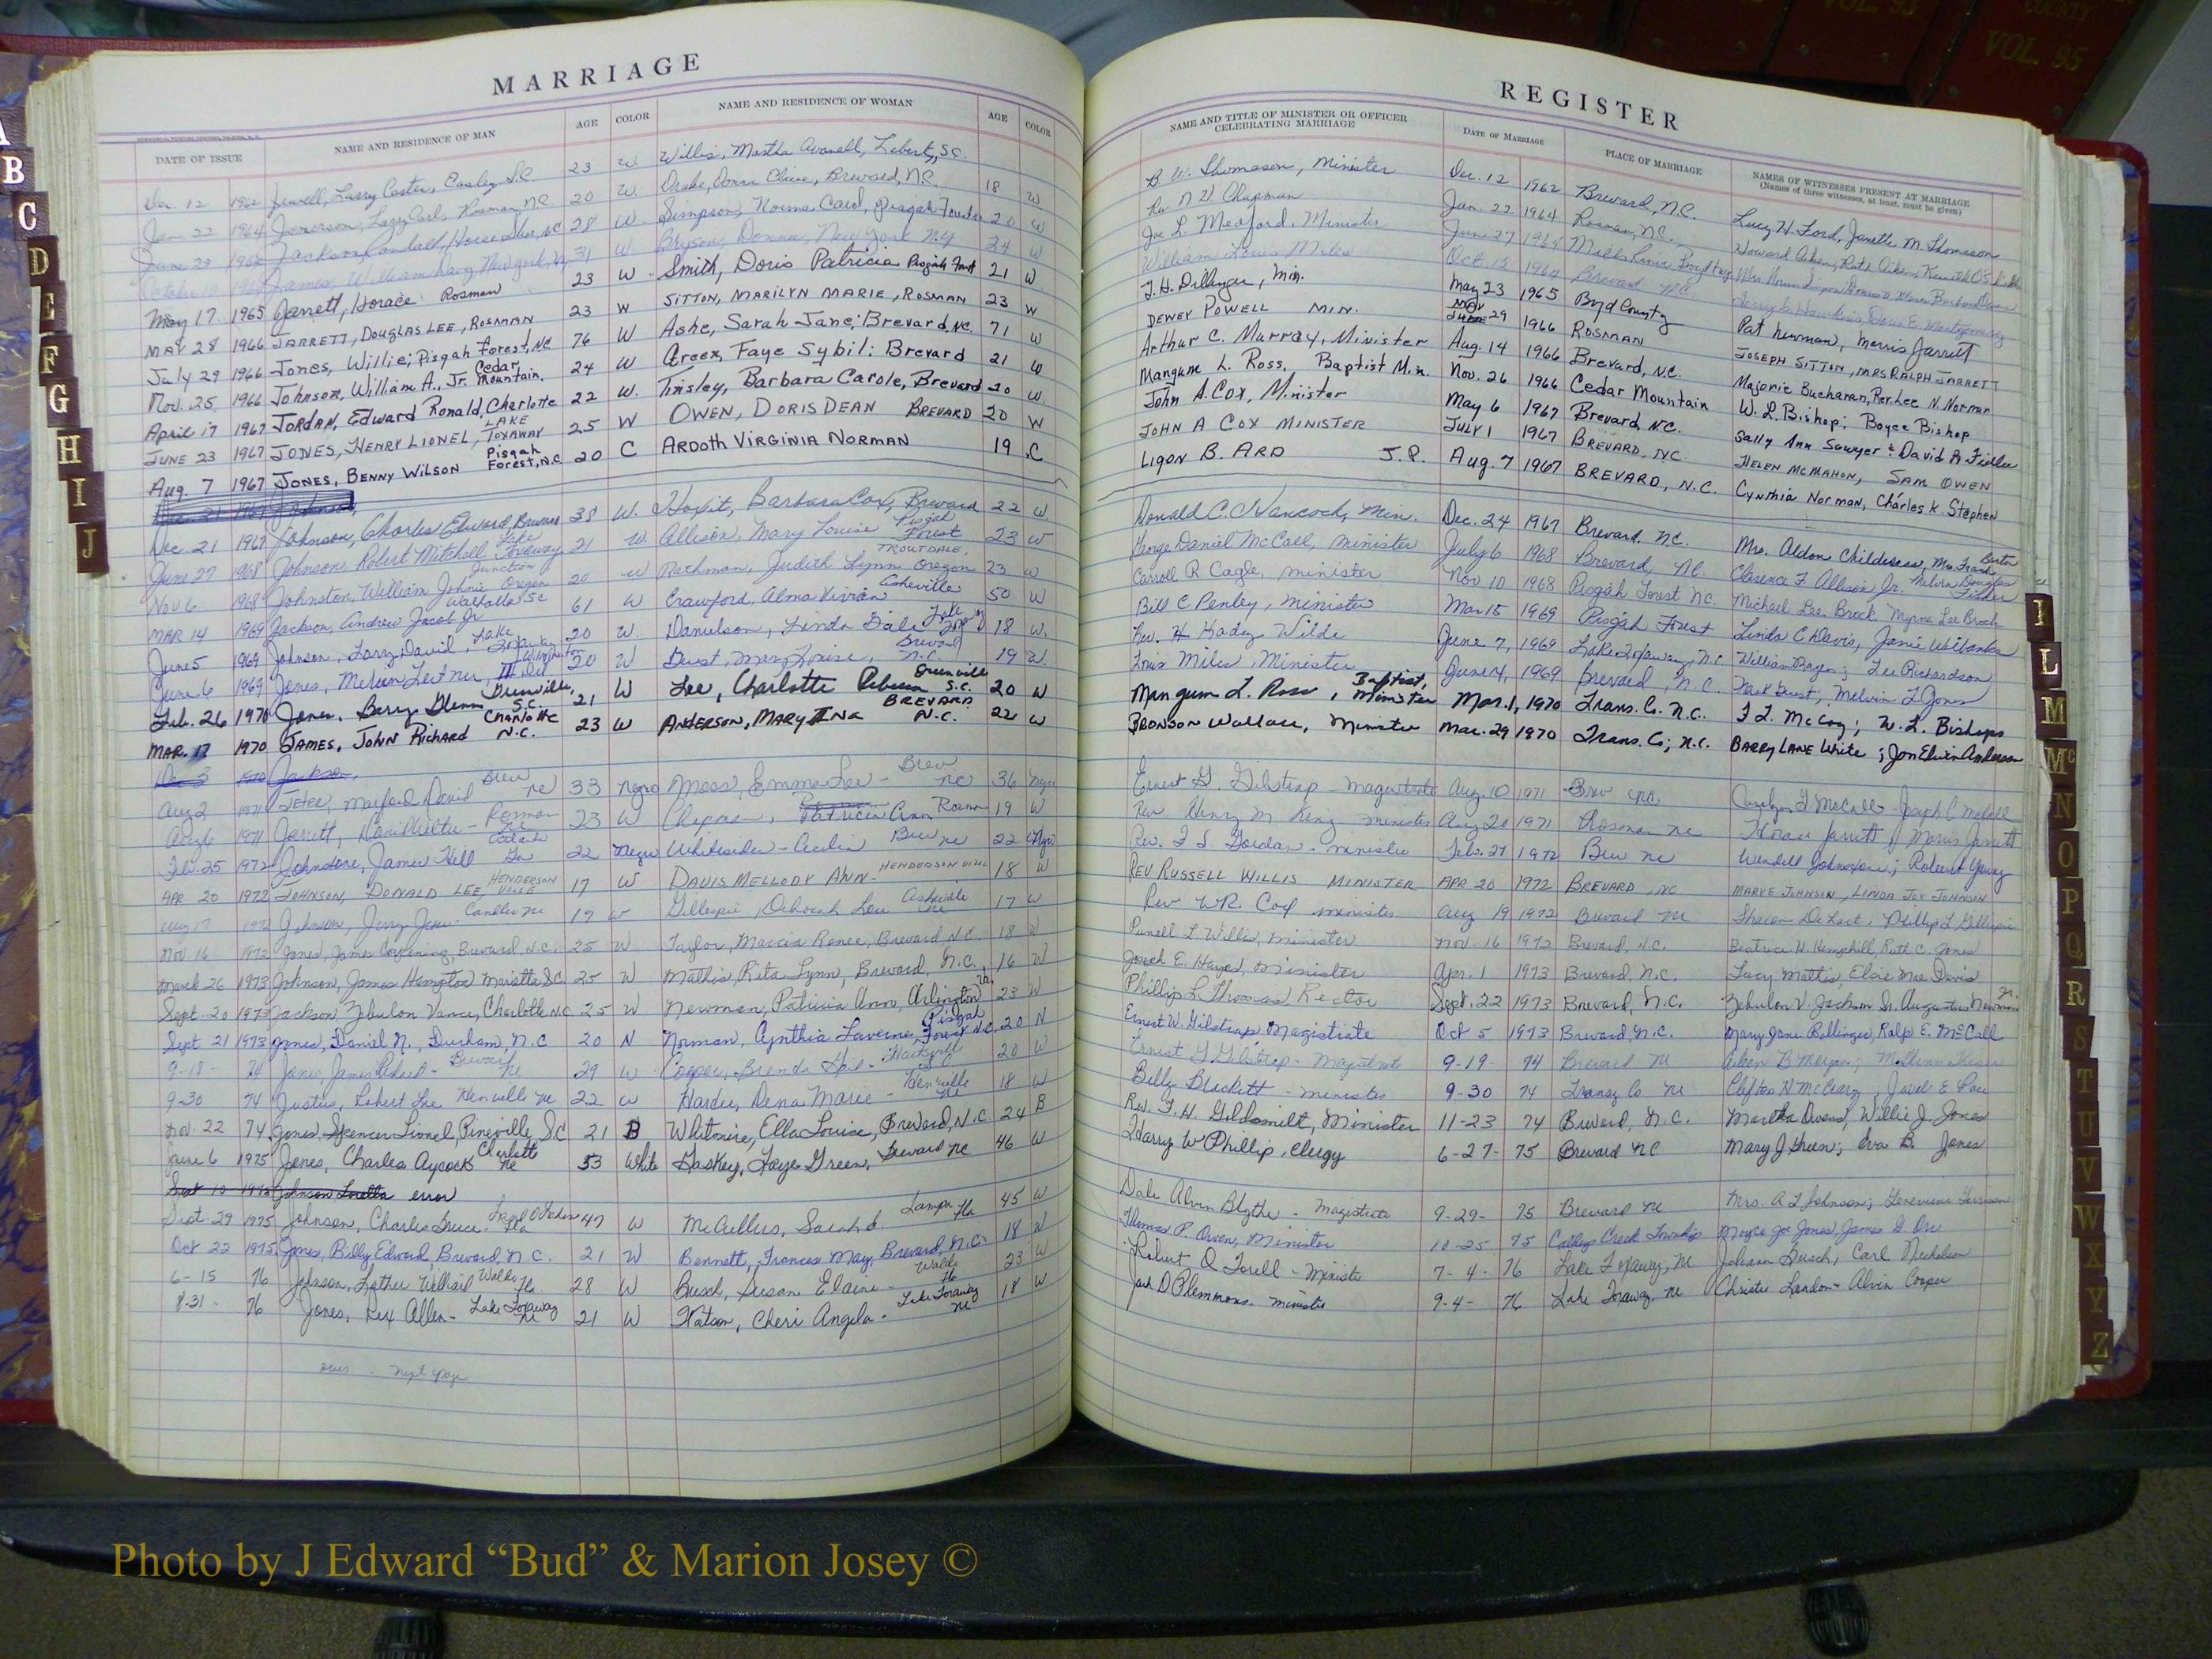 COUNTY
VOL. 93
VOL. 95
MARRIAGE
DATE OF ISSUE NAME AND RESIDENCE OF MAN AGE COLOR NAME AND RESIDENCE OF WOMAN AGE COLOR
Dec. 12 1962 Jewell, Larry Carter, Easley S.C. 23 W Willis, Martha Avanell, Liberty, S.C. 18 W
Jan 22 1964 Larry Carl, Rosman, N.C. 20 W. Drake, Donna Brevard, N.C.
June 23 Jackson, Randall, Horse Shoe, N.C. 28 W. Simpson, Norma Carol, Pisgah Forest 20 W
October 10 James, William New York, N.Y. 31 W Bryson, New York N.Y. 24 W
May 17 1965 Jarrett, Horace Rosman 23 W Smith, Doris Patricia Pisgah Forest 21 W
MAY 28 1966 JARRETT, DOUGLAS LEE, ROSMAN 23 W SITTON, MARILYN MARIE, ROSMAN 23 W
July 29 1966 Jones, Willie; Pisgah Forest, N.C. 76 W Ashe, Sarah Jane; Brevard, N.C. 71 W
Nov. 25 1966 Johnson, William A., Jr. Cedar Mountain. 24 W Green, Faye Sybil: Brevard 21 W
April 17 1967 Jordan, Edward Ronald, Charlotte 22 W. Tinsley, Barbara Carole, Brevard 20 W
JUNE 23 1967 JONES, HENRY LIONEL, LAKE TOXAWAY 25 W OWEN, DORIS DEAN BREVARD 20 W
Aug. 7 1967 JONES, BENNY WILSON Pisgah Forest, N.C. 20 C ARDOTH VIRGINIA NORMAN 19 C
Dec. 21 1967 Johnson, Charles Edward, Brevard 38 W. Hoxit, Barbara Cox, Brevard 22 W.
June 27 1968 Johnson, Robert Mitchell Lake Toxaway 21 W. Allison, Mary Louise Pisgah Forest 23 W
Nov 6 1968 Johnston, William Johnie Junction Oregon 20 W Rathman, Judith Lynn TROUTDALE, Oregon 23 W
MAR 14 1969 Jackson, Andrew Jacob Jr Walhalla SC 61 W Crawford, Alma Vivian Asheville 50 W
June 5 1969 Johnson, Larry David, Lake Toxaway 20 W. Danielson, Linda Gale 18 W.
June 6 1969 Jones, Melvin III Wilmington 20 W Mary Louise, Brevard N.C. 19 W.
Feb. 26 1970 Jones, Barry Glenn Greenville, S.C. 21 W Lee, Charlotte Rebecca Greenville S.C. 20 W
MAR. 17 1970 JAMES, JOHN Richard Charlotte N.C. 23 W ANDERSON, MARY INA BREVARD N.C. 22 W
1970 Jackson,
Aug 2 1971 Jeter, David Brev NC 33 Negro Moss, Emma Lee - Brev NC 36 Negro
Aug 6 1971 Jarrett, Rosman NC 23 W Patricia Ann Rosman 19 W
Feb. 25 1972 James Hill Ga 22 Negro Whiteside - Cecelia Brev NC 22 Negro
APR. 20 1972 JOHNSON, DONALD LEE, HENDERSONVILLE 17 W DAVIS MELLODY ANN - HENDERSONVILLE 18 W
Aug 17 1972 Johnson, Jerry Candler NC 19 W Gillespie, Deborah Lou Asheville NC 17 W
Nov. 16 1972 Jones, James Brevard N.C. 25 W Taylor, Marcia Renee, Brevard N.C. 18 W
March 26 1973 Johnson, James Hampton Marietta S.C. 25 W Mathis, Rita Lynn, Brevard, N.C. 16 W
Sept. 20 1973 Jackson, Zebulon Vance, Charlotte N.C. 25 W Newman, Patricia Ann, Arlington Va. 23 W
Sept 21 1973 Jones, Daniel N., Durham, N.C 20 N Norman, Cynthia Laverne, Pisgah Forest N.C. 20 N
9-18- 74 Jones, James Brevard NC 29 W Cooper, Brenda 20 W
9-30 74 Justus, Robert Lee Henville NC 22 W Dena Marie - Henville NC 18 W
Nov. 22 74 Jones, Spencer Lionel, Pineville S.C 21 B Whitmire, Ella Louise, Brevard, N.C. 24 B
June 6 1975 Jones, Charles Aycock Charlotte NC 53 White Haskey, Faye Green, Brevard NC 46 W
Sept 10 1975 Johnson Loretta error
Sept. 29 1975 Johnson, Charles Fla 47 W McCullers, Sarah Tampa Fla 45 W
Oct 22 1975 Jones, Billy Edward, Brevard, N.C. 21 W Bennett, Frances May, Brevard, N.C. 18 W
6-15 76 Johnson, Luther Waldo Fla 28 W Susan Elaine Waldo Fla 23 W
8-31- 76 Jones, Rex Allen - Lake Toxaway NC 21 W Watson, Cheri Angela - Lake Toxaway NC 18 W
over - next page
REGISTER
NAME AND TITLE OF MINISTER OR OFFICER CELEBRATING MARRIAGE DATE OF MARRIAGE PLACE OF MARRIAGE NAMES OF WITNESSES PRESENT AT MARRIAGE
(Names of three witnesses, at least, must be given)
B. W. Thomason, Minister Dec. 12 1962 Brevard, N.C. Lucy H. Ford, Janette M. Thomason
Rev. N. D. Chapman Jan. 22 1964 Rosman, N.C.
Joe L. Medford, Minister June 27 1964 Mills River
William Louis Miles Oct. 13 1964 Brevard NC
T. H. Dillinger, Min. May 23 1965 Boyd County Pat Newman, Merris Jarrett
DEWEY POWELL MIN. MAY 29 1966 ROSMAN JOSEPH SITTON, MRS RALPH JARRETT
Arthur C. Murray, Minister Aug. 14 1966 Brevard, N.C. Marjorie Buchanan, Rev. Lee N. Norman
Mangum L. Ross, Baptist Min. Nov. 26 1966 Cedar Mountain W. L. Bishop; Boyce Bishop
John A. Cox, Minister May 6 1967 Brevard, N.C. Sally Ann Sawyer & David R Fidler
JOHN A COX MINISTER JULY 1 1967 BREVARD, N.C. HELEN MCMAHON, SAM OWEN
LIGON B. ARD J.P. Aug. 7 1967 BREVARD, N.C. Cynthia Norman, Charles K. Stephen
Donald C. Hancock, Min. Dec. 24 1967 Brevard, N.C. Mrs. Aldon Childress, Mrs. Frank Barton
George Daniel McCall, minister July 6 1968 Brevard, NC Clarence F. Allison Jr.
Carroll R Cagle, minister Nov 10 1968 Pisgah Forest N.C. Michael Lee Brock Myrna Lee Brock
Bill C Penley, minister Mar 15 1969 Pisgah Forest Linda C Davis, Janie Wilbanks
Rev. H Hadley Wilde June 7, 1969 Lake Toxaway, N.C. Lee Richardson
Louis Miles, Minister June 14, 1969 Brevard, N.C. Melvin L Jones
Mangum L. Ross, Baptist Minister Mar. 1, 1970 Trans. Co. N.C. F. L. McCoy; W. L. Bishop
BRONSON Wallace, Minister Mar. 29 1970 Trans. Co; N.C. BARRY LANE White; Jon Elwin Anderson
Ernest G. Gilstrap - magistrate Aug. 10 1971 Brev NC Carolyn F McCall - Joseph C McCall
Rev Henry M King minister Aug 20 1971 Rosman NC Horace Jarrett; Marris Jarrett
Rev. F S Gordan - minister Feb. 27 1972 Brev NC Wendell Johnson; Robert Young
REV RUSSELL WILLIS MINISTER APR 20 1972 BREVARD, NC MARVE JOHNSON, LINDA JOY JOHNSON
Rev W.R. Cox minister Aug 19 1972 Brevard NC Sharon Phillip L Gillespie
Purnell L. Willis, minister Nov. 16 1972 Brevard, N.C. Beatrice H. Hemphill, Ruth C. Jones
Joseph E. Hayes, Minister Apr. 1 1973 Brevard, N.C. Lucy Mathis, Elsie Mae Davis
Phillip L Thomas Rector Sept. 22 1973 Brevard, N.C. Zebulon V. Jackson Sr. Augustus Newman Jr.
Ernest W. Gilstrap, Magistrate Oct 5 1973 Brevard N.C. Mary Jane Bollinger, Ralp E. McCall
Ernest G Gilstrap - magistrate 9-19- 74 Brevard NC
Billy Brackett - minister 9-30 74 Transy Co NC Clifton H McCleary
Rev. F. H. Goldsmith, Minister 11-23 74 Brevard, N.C. Martha Owens, Willie J. Jones
Harry W Phillip, Clergy 6-27- 75 Brevard NC Mary J Green; Eva B. Jones
Dale Alvin Blythe - magistrate 9-29- 75 Brevard NC Mrs. A L Johnson; Genevieve
Thomas P. Owen, Minister 10-25 75 Catheys Creek Township Joe Jones, James D. Orr
Robert Q Terrell - Minister 7-4- 76 Lake Toxaway, NC Carl Nicholson
Jack D Plemmons - minister 9-4- 76 Lake Toxaway, NC Christie Landon - Alvin Cooper
A
B
C
D
E
F
G
H
I
J
I
L
M
Mc
N
O
P
Q
R
S
T
U
V
W
X
Y
Z
Photo by J Edward “Bud” & Marion Josey ©